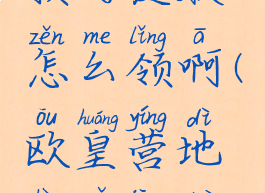 zěn me lǐng ā
怎么领啊(
ōu huáng yíng dì
欧皇营地